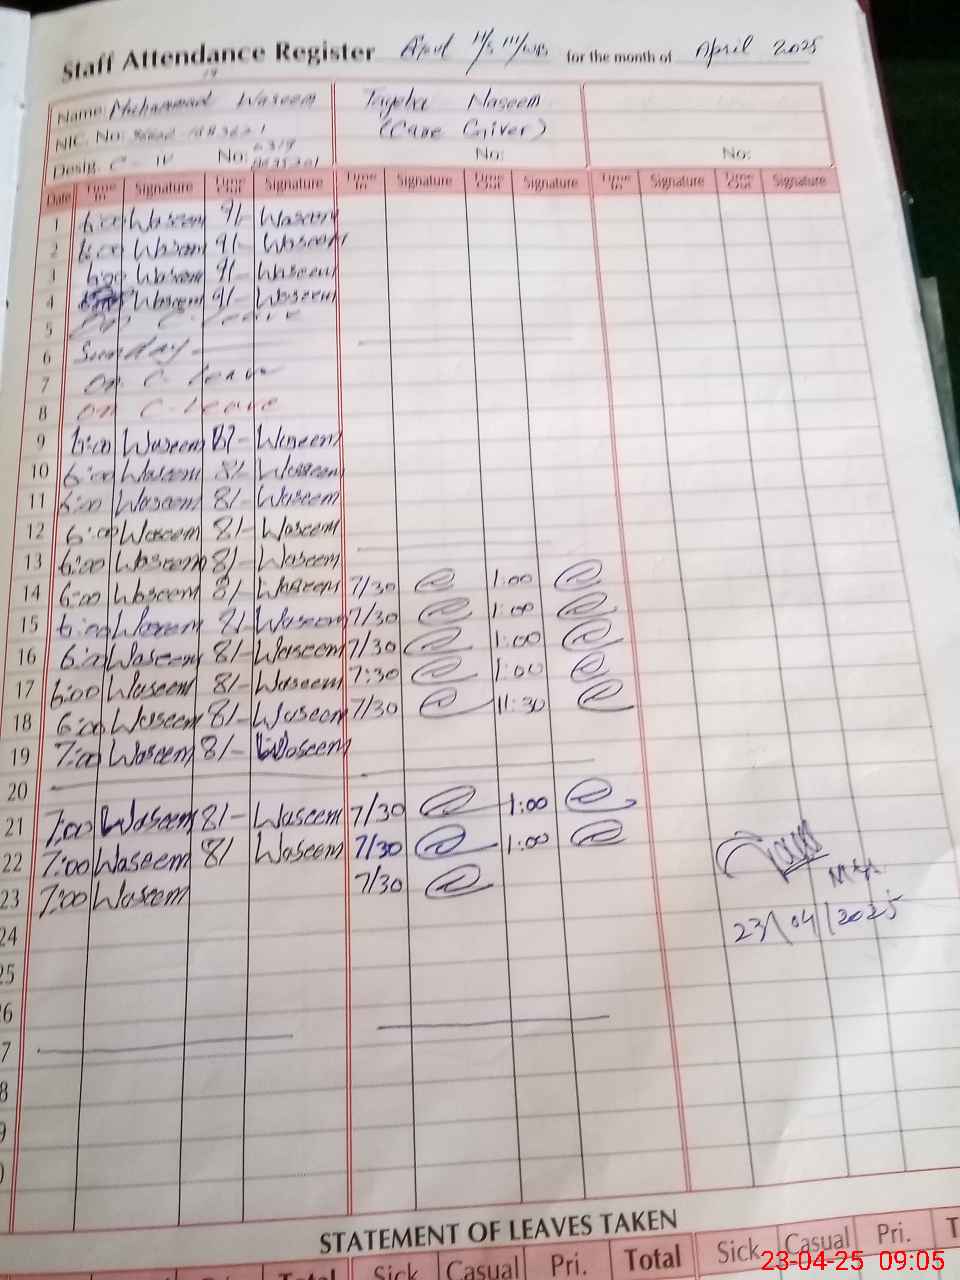 Staff Attendance Register April for the month of April 2025
Name: Muhammad Waseem Tayeba Naseem
NIC. No: (Care Giver)
Desig. C - IV No: No: No:
Date Time In Signature Time Out Signature Time In Signature Time Out Signature Time In Signature Time Out Signature
1 6:00 Waseem 9/- Waseem
2 6:00 Waseem 9/- Waseem
3 6:00 Waseem 9/- Waseem
4 Waseem 9/- Waseem
5 On C. Leave
6 Sunday
7 On C. leave
8 On C. Leave
9 6:00 Waseem 8/- Waseem
10 6:00 Waseem 8/- Waseem
11 6:00 Waseem 8/- Waseem
12 6:00 Waseem 8/- Waseem
13 6:00 Waseem 8/- Waseem
14 6:00 Waseem 8/- Waseem 7/30 1:00
15 6:00 Waseem 8/- Waseem 7/30 1:00
16 6:00 Waseem 8/- Waseem 7/30 1:00
17 6:00 Waseem 8/- Waseem 7:30 1:00
18 6:00 Waseem 8/- Waseem 7/30 11:30
19 7:00 Waseem 8/- Waseem
20
21 7:00 Waseem 8/- Waseem 7/30 1:00
22 7:00 Waseem 8/ Waseem 7/30 1:00
23 7:00 Waseem 7/30
24 23/04/2025
25
26
7
8
9
0
STATEMENT OF LEAVES TAKEN
Total Sick Casual Pri. Total Sick Casual Pri. T
23-04-25 09:05